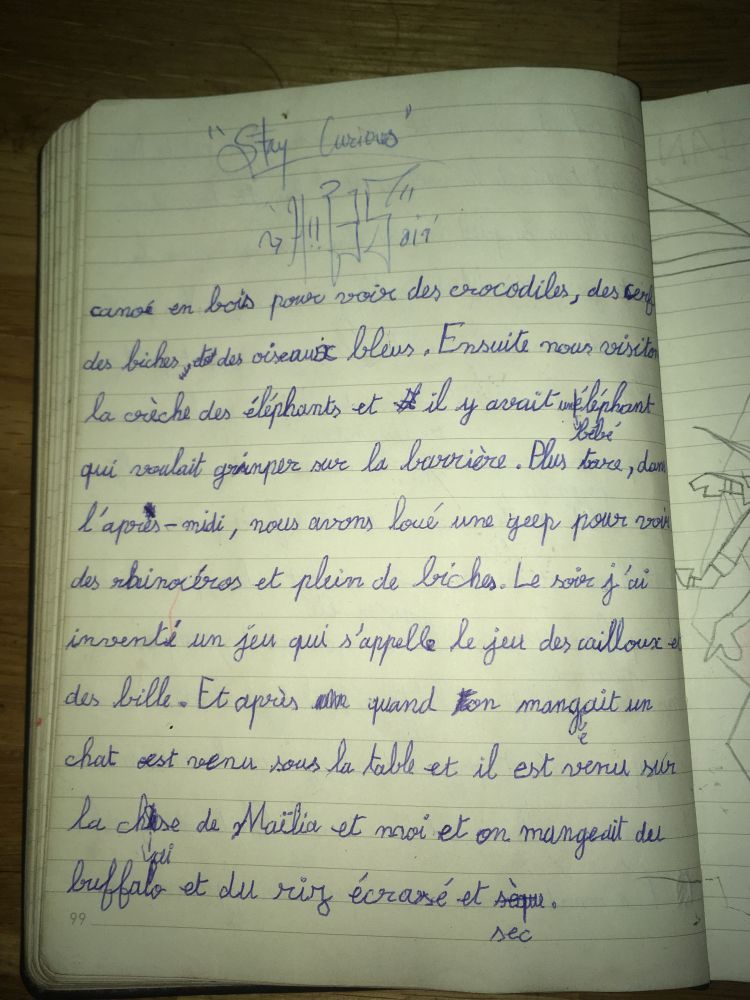 "Stay Curious"
canoé en bois pour voir des crocodiles, des cerf
des biches, des oiseaux bleus. Ensuite nous visiton
la crèche des éléphants et il y avait un éléphant
bébé
qui voulait grimper sur la barrière. Plus tare, dans
l'après-midi, nous avons loué une yeep pour voir
des rhinocéros et plein de biches. Le soir j'ai
inventé un jeu qui s'appelle le jeu des cailloux et
des bille. Et après quand on mangait un
é
chat est venu sous la table et il est venu sur
la chise de Maïlia et moi et on mangeait du
ai
buffalo et du riz écrasé et sèque.
sec
99